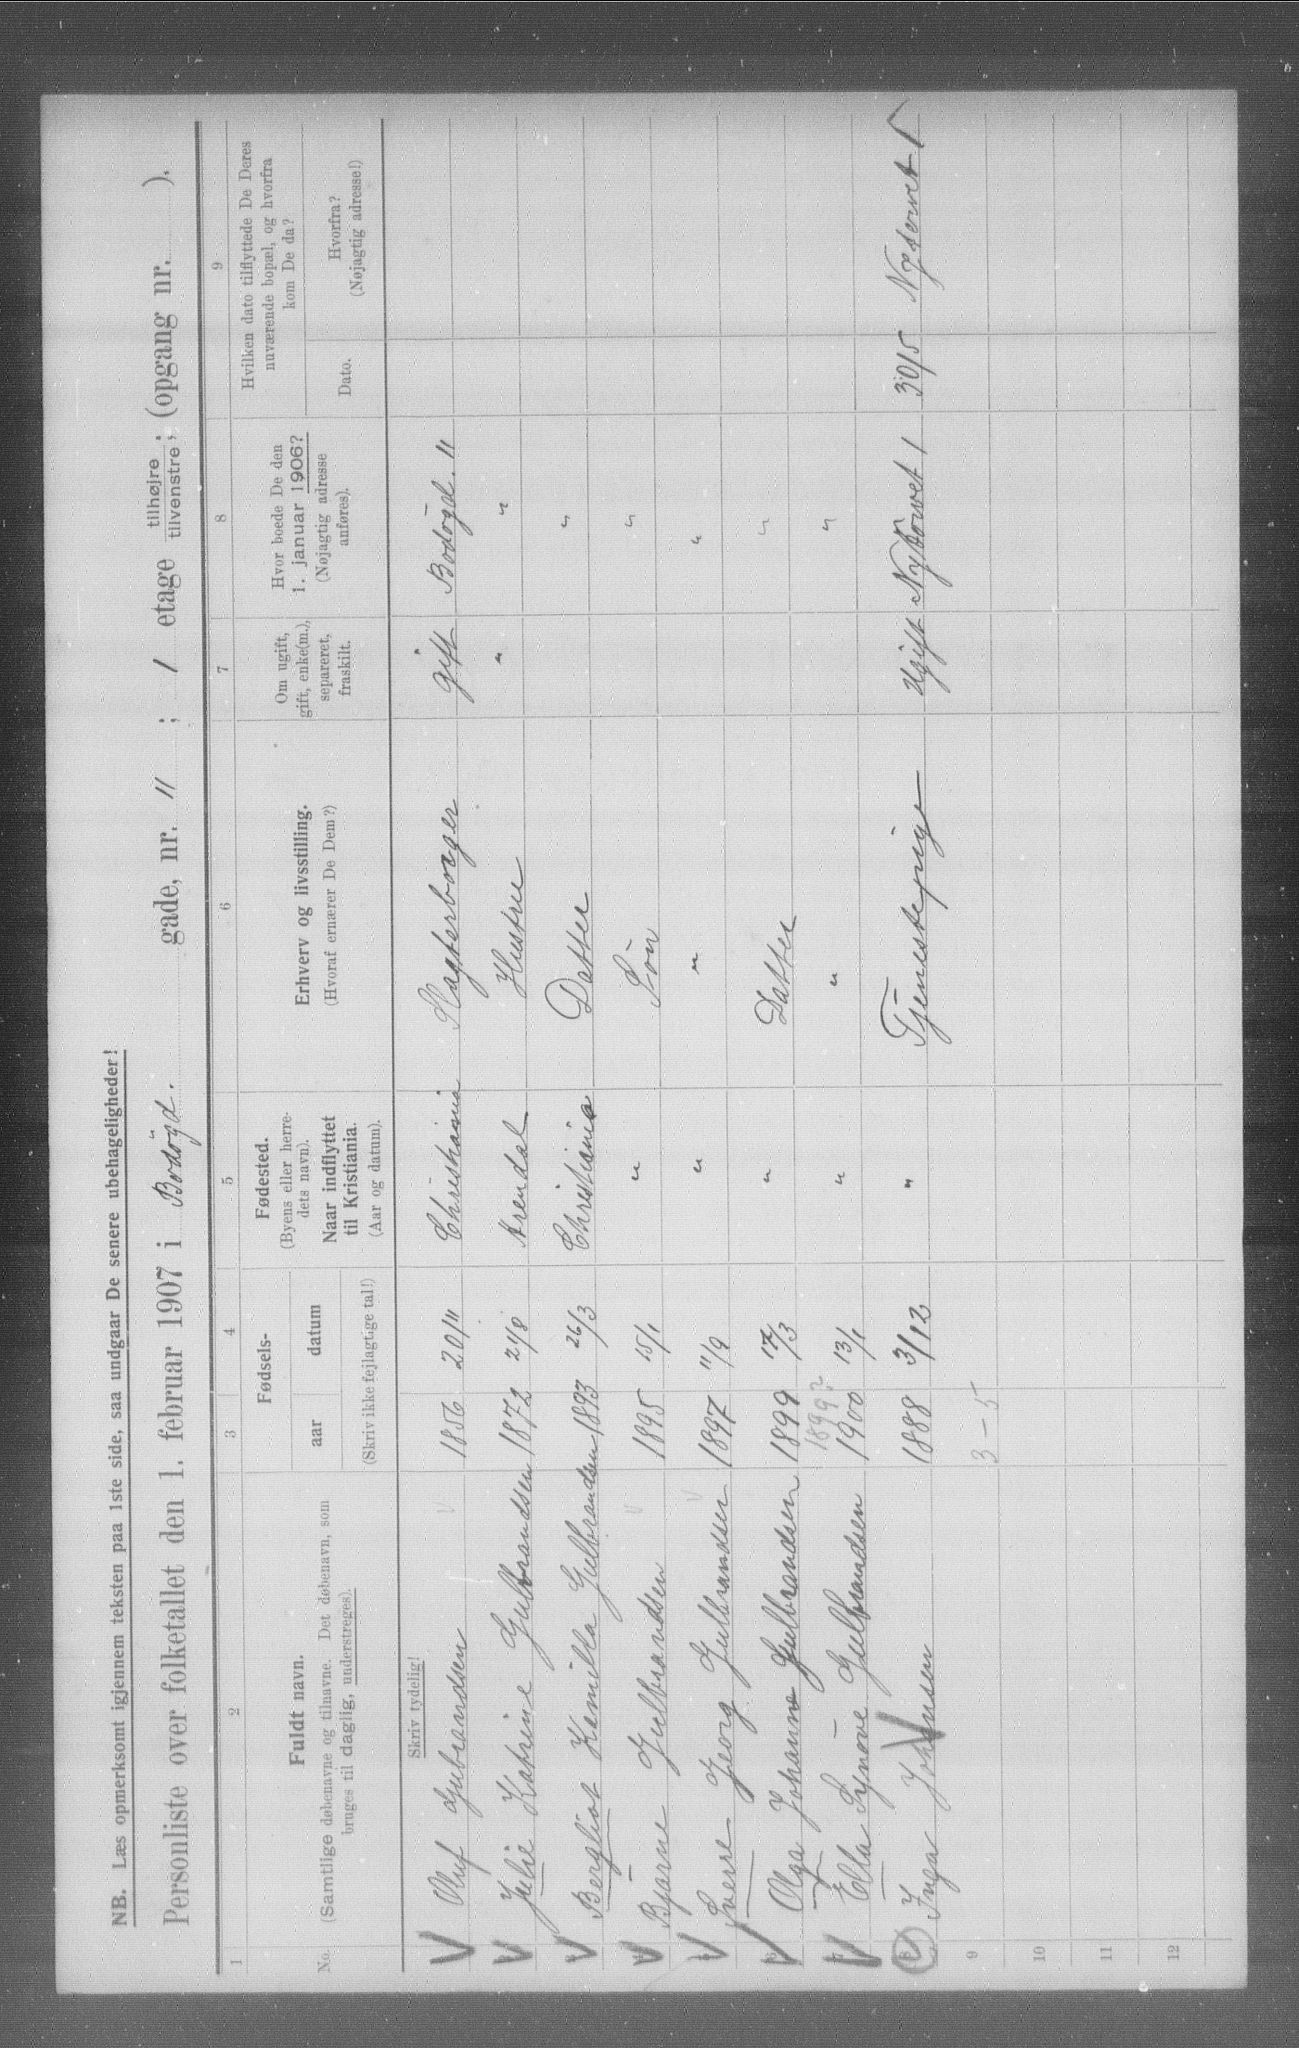 NB. Læs opmerksomt igjennem teksten paa 1ste side, saa undgaar De senere ubehageligheder!
Personliste over folketallet den 1. februar 1907 i Bodögd. gade, nr. 11 ; 1 etage tilhøjre tilvenstre; (opgang nr. ).
1 2 3 4 5 6 7 8 9
No.
Fuldt navn.
(Samtlige døbenavne og tilnavne. Det døbenavn, som
bruges til daglig, understreges).
Fødsels-
aar datum
(Skriv ikke fejlagtige tal!)
Fødested.
(Byens eller herre-
dets navn).
Naar indflyttet
til Kristiania.
(Aar og datum).
Erhverv og livsstilling.
(Hvoraf ernærer De Dem?)
Om ugift,
gift, enke(m.),
separeret,
fraskilt.
Hvor boede De den
1. januar 1906?
(Nøjagtig adresse
anføres).
Hvilken dato tilflyttede De Deres
nuværende bopæl, og hvorfra
kom De da?
Dato.
Hvorfra?
(Nøjagtig adresse!)
Skriv tydelig!
Oluf Gulbrandsen 1856 20/11 Christiania gift Bodögd. 11
Julie Katrine Gulbrandsen 1872 21/8 Arendal Hustru " "
Bergliot Kamilla Gulbrandsen 1893 26/3 Christiania Datter "
Bjarne Gulbrandsen 1895 15/1 " Sön "
Sverre Georg Gulbrandsen 1897 11/9 " " "
6 Olga Johanne Gulbrandsen 1899 17/3 " Datter "
1899?
Ella Synöve Gulbrandsen 1900 13/1 " " "
Inga Johansen 1888 3/12 " Tjenestepige Ugift Nytorvet 1 30/5 Nytorvet 1
3 - 5
9
10
11
12